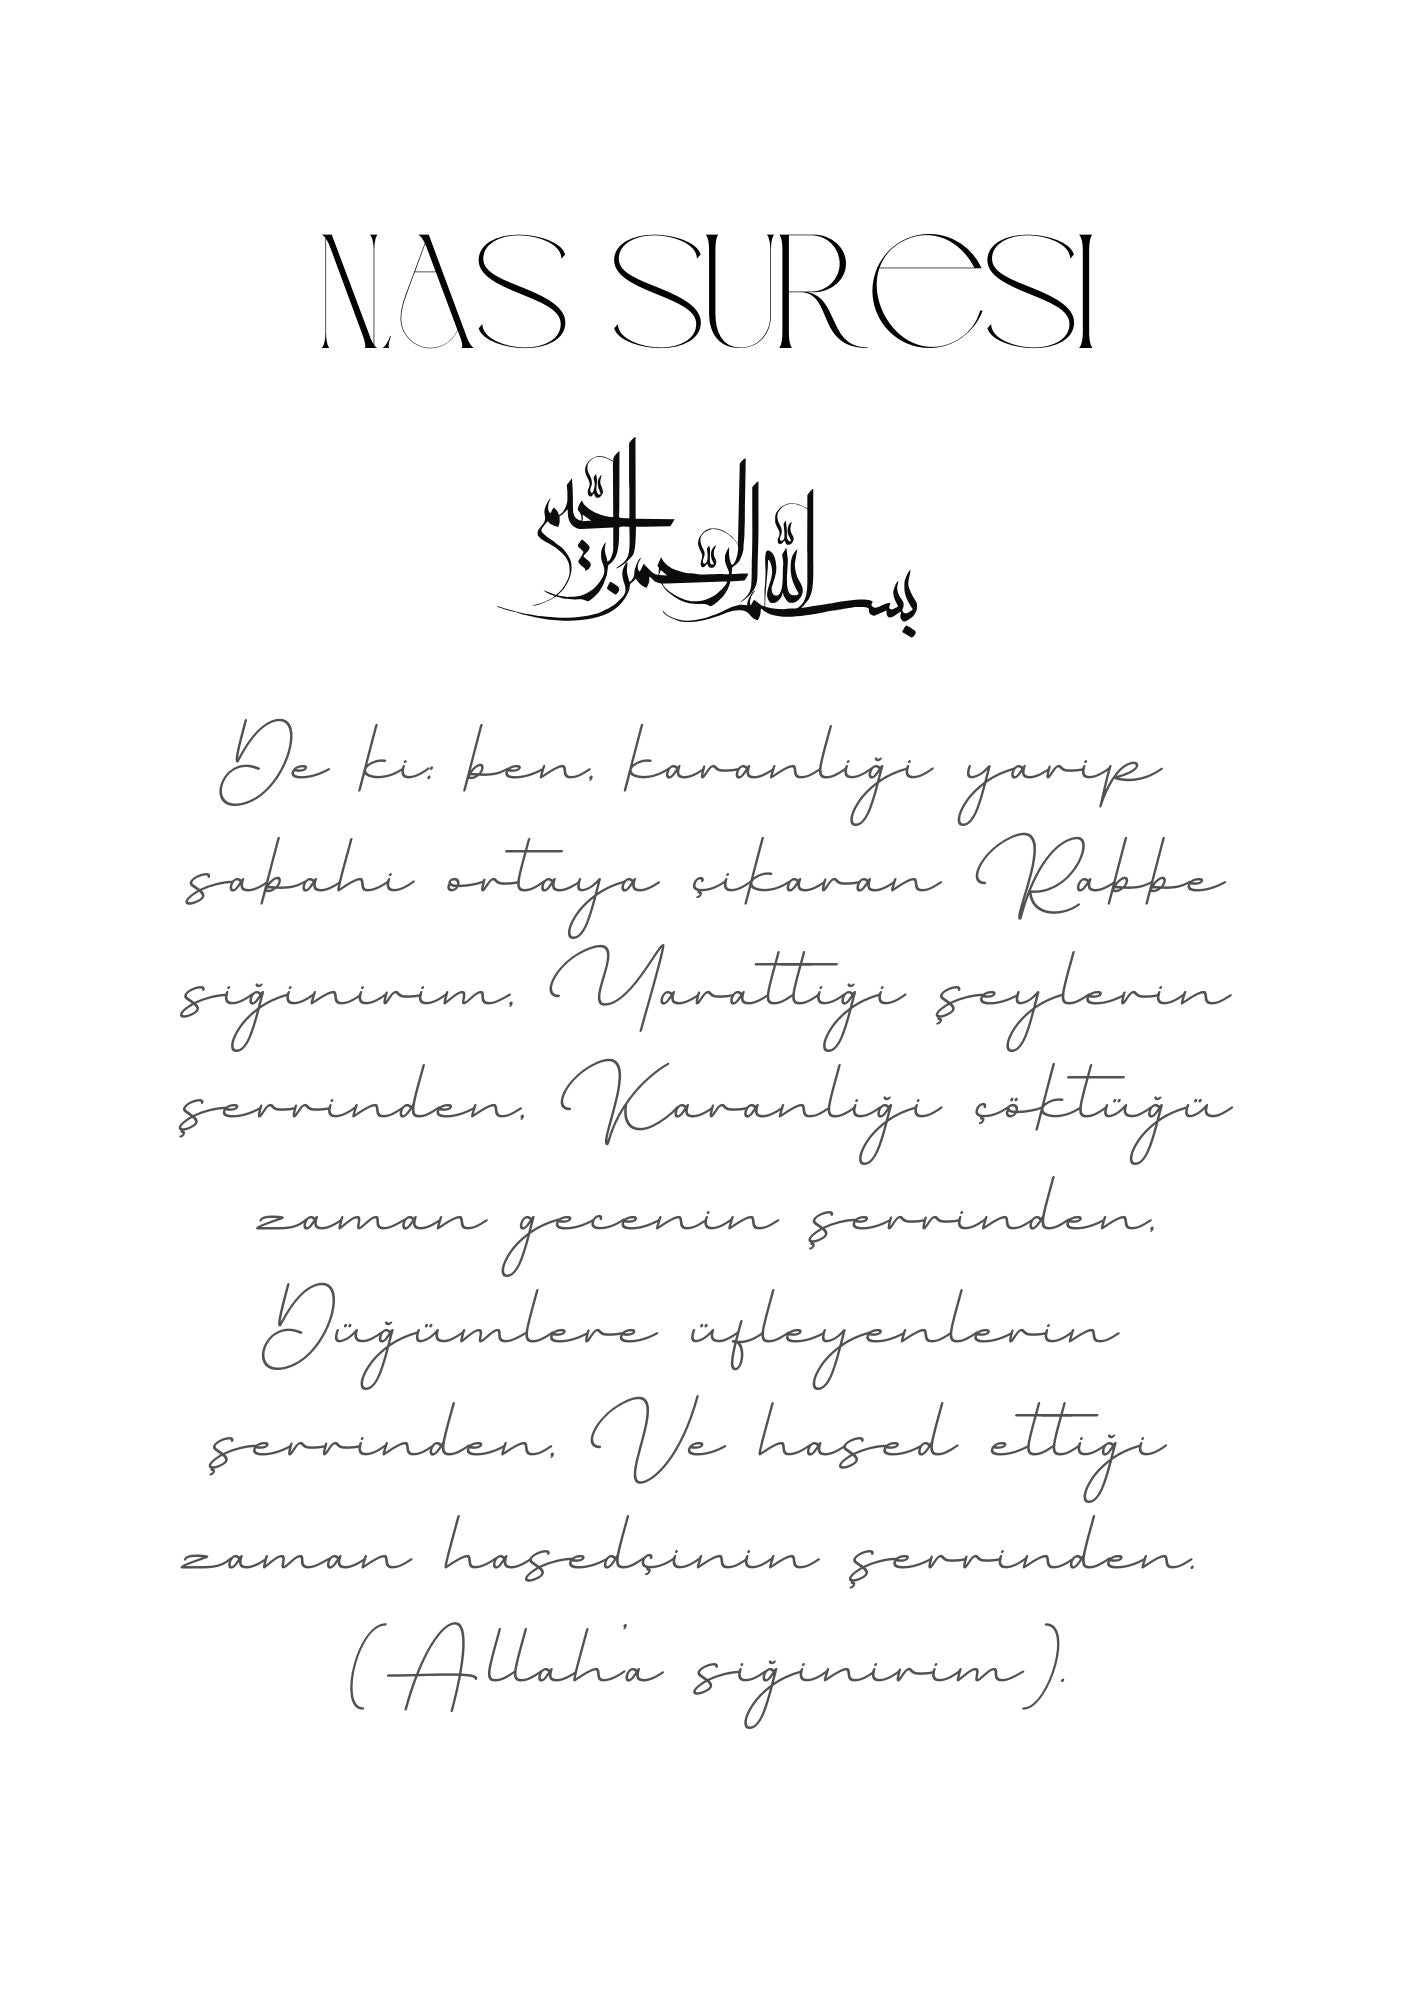 NAS SURESI
بسم الله الرحمن الرحيم
De ki: ben, karanliği yarip
sabahi ortaya çikaran Rabbe
siğinirim, Yarattiği şeylerin
şerrinden, Karanliği çöktüğü
zaman gecenin şerrinden,
Düğümlere üfleyenlerin
şerrinden, Ve hased ettiği
zaman hasedçinin şerrinden.
(Allah'a siğinirim).